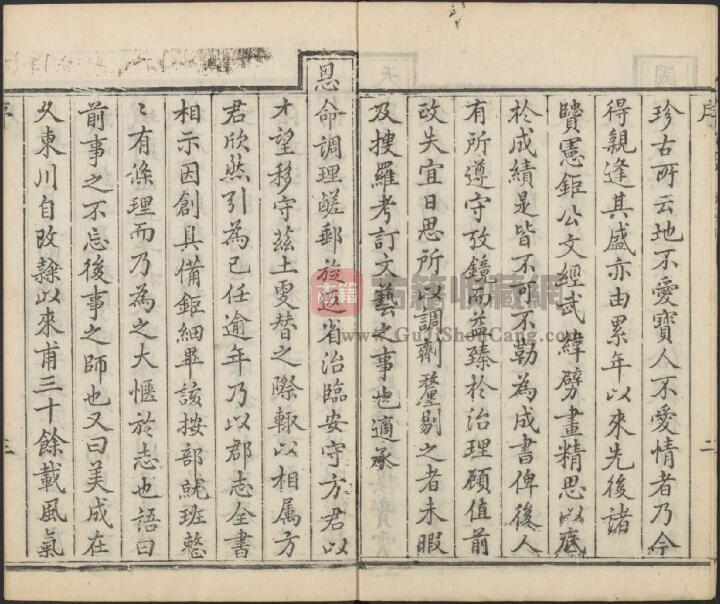 序
二
珍古所云地不愛寶人不愛情者乃今
得親逢其盛亦由累年以來先後諸
賢憲鉅公文經武緯劈畫精思以底
於成績是皆不可不勒為成書俾後人
有所遵守攷鏡而益臻於治理顧值前
政失宜日思所以調劑釐剔之者未暇
及搜羅考訂文藝之事也適承
恩命調理鹺郵旋返省治臨安守方君以
才望移守茲土受替之際輙以相属方
君欣然引為己任逾年乃以郡志全書
相示因創具備鉅細畢該按部就班整
〻有條理而乃為之大愜於志也語曰
前事之不忘後事之師也又曰美成在
久東川自改隸以來甫三十餘載風氣
三
古籍
古籍收藏網
www.GujiShouCang.com